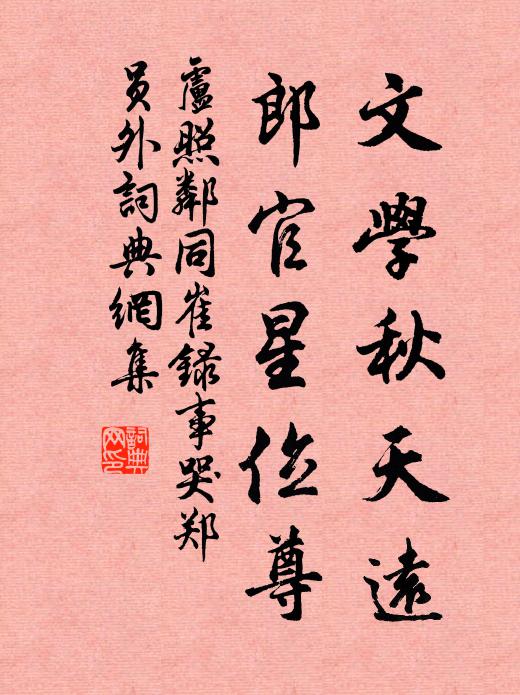 文學秋天遠
郎官星位尊
盧照鄰同崔録事哭郑
員外詞典網集
詞典
网印